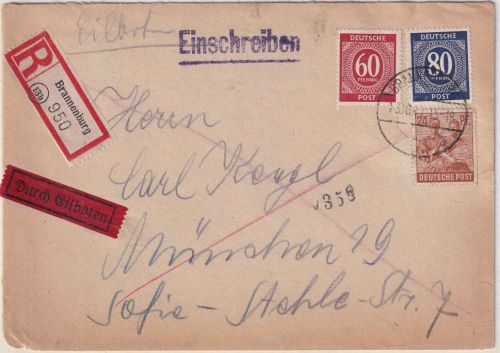 Eilboten
Einschreiben
R
(13b)
Brannenburg
950
Durch Eilboten
DEUTSCHE
60
PFENNIG
POST
DEUTSCHE
80
PFENNIG
POST
24
DEUTSCHE POST
Herrn
Carl
358
München 19
Sofie-Stehle-Str. 7